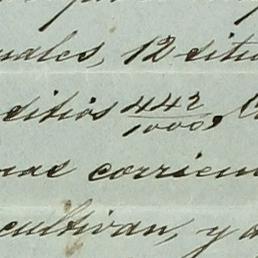 uales, 12 sitio
sitios 442/1000, C
uas corrien
cultivan, y a